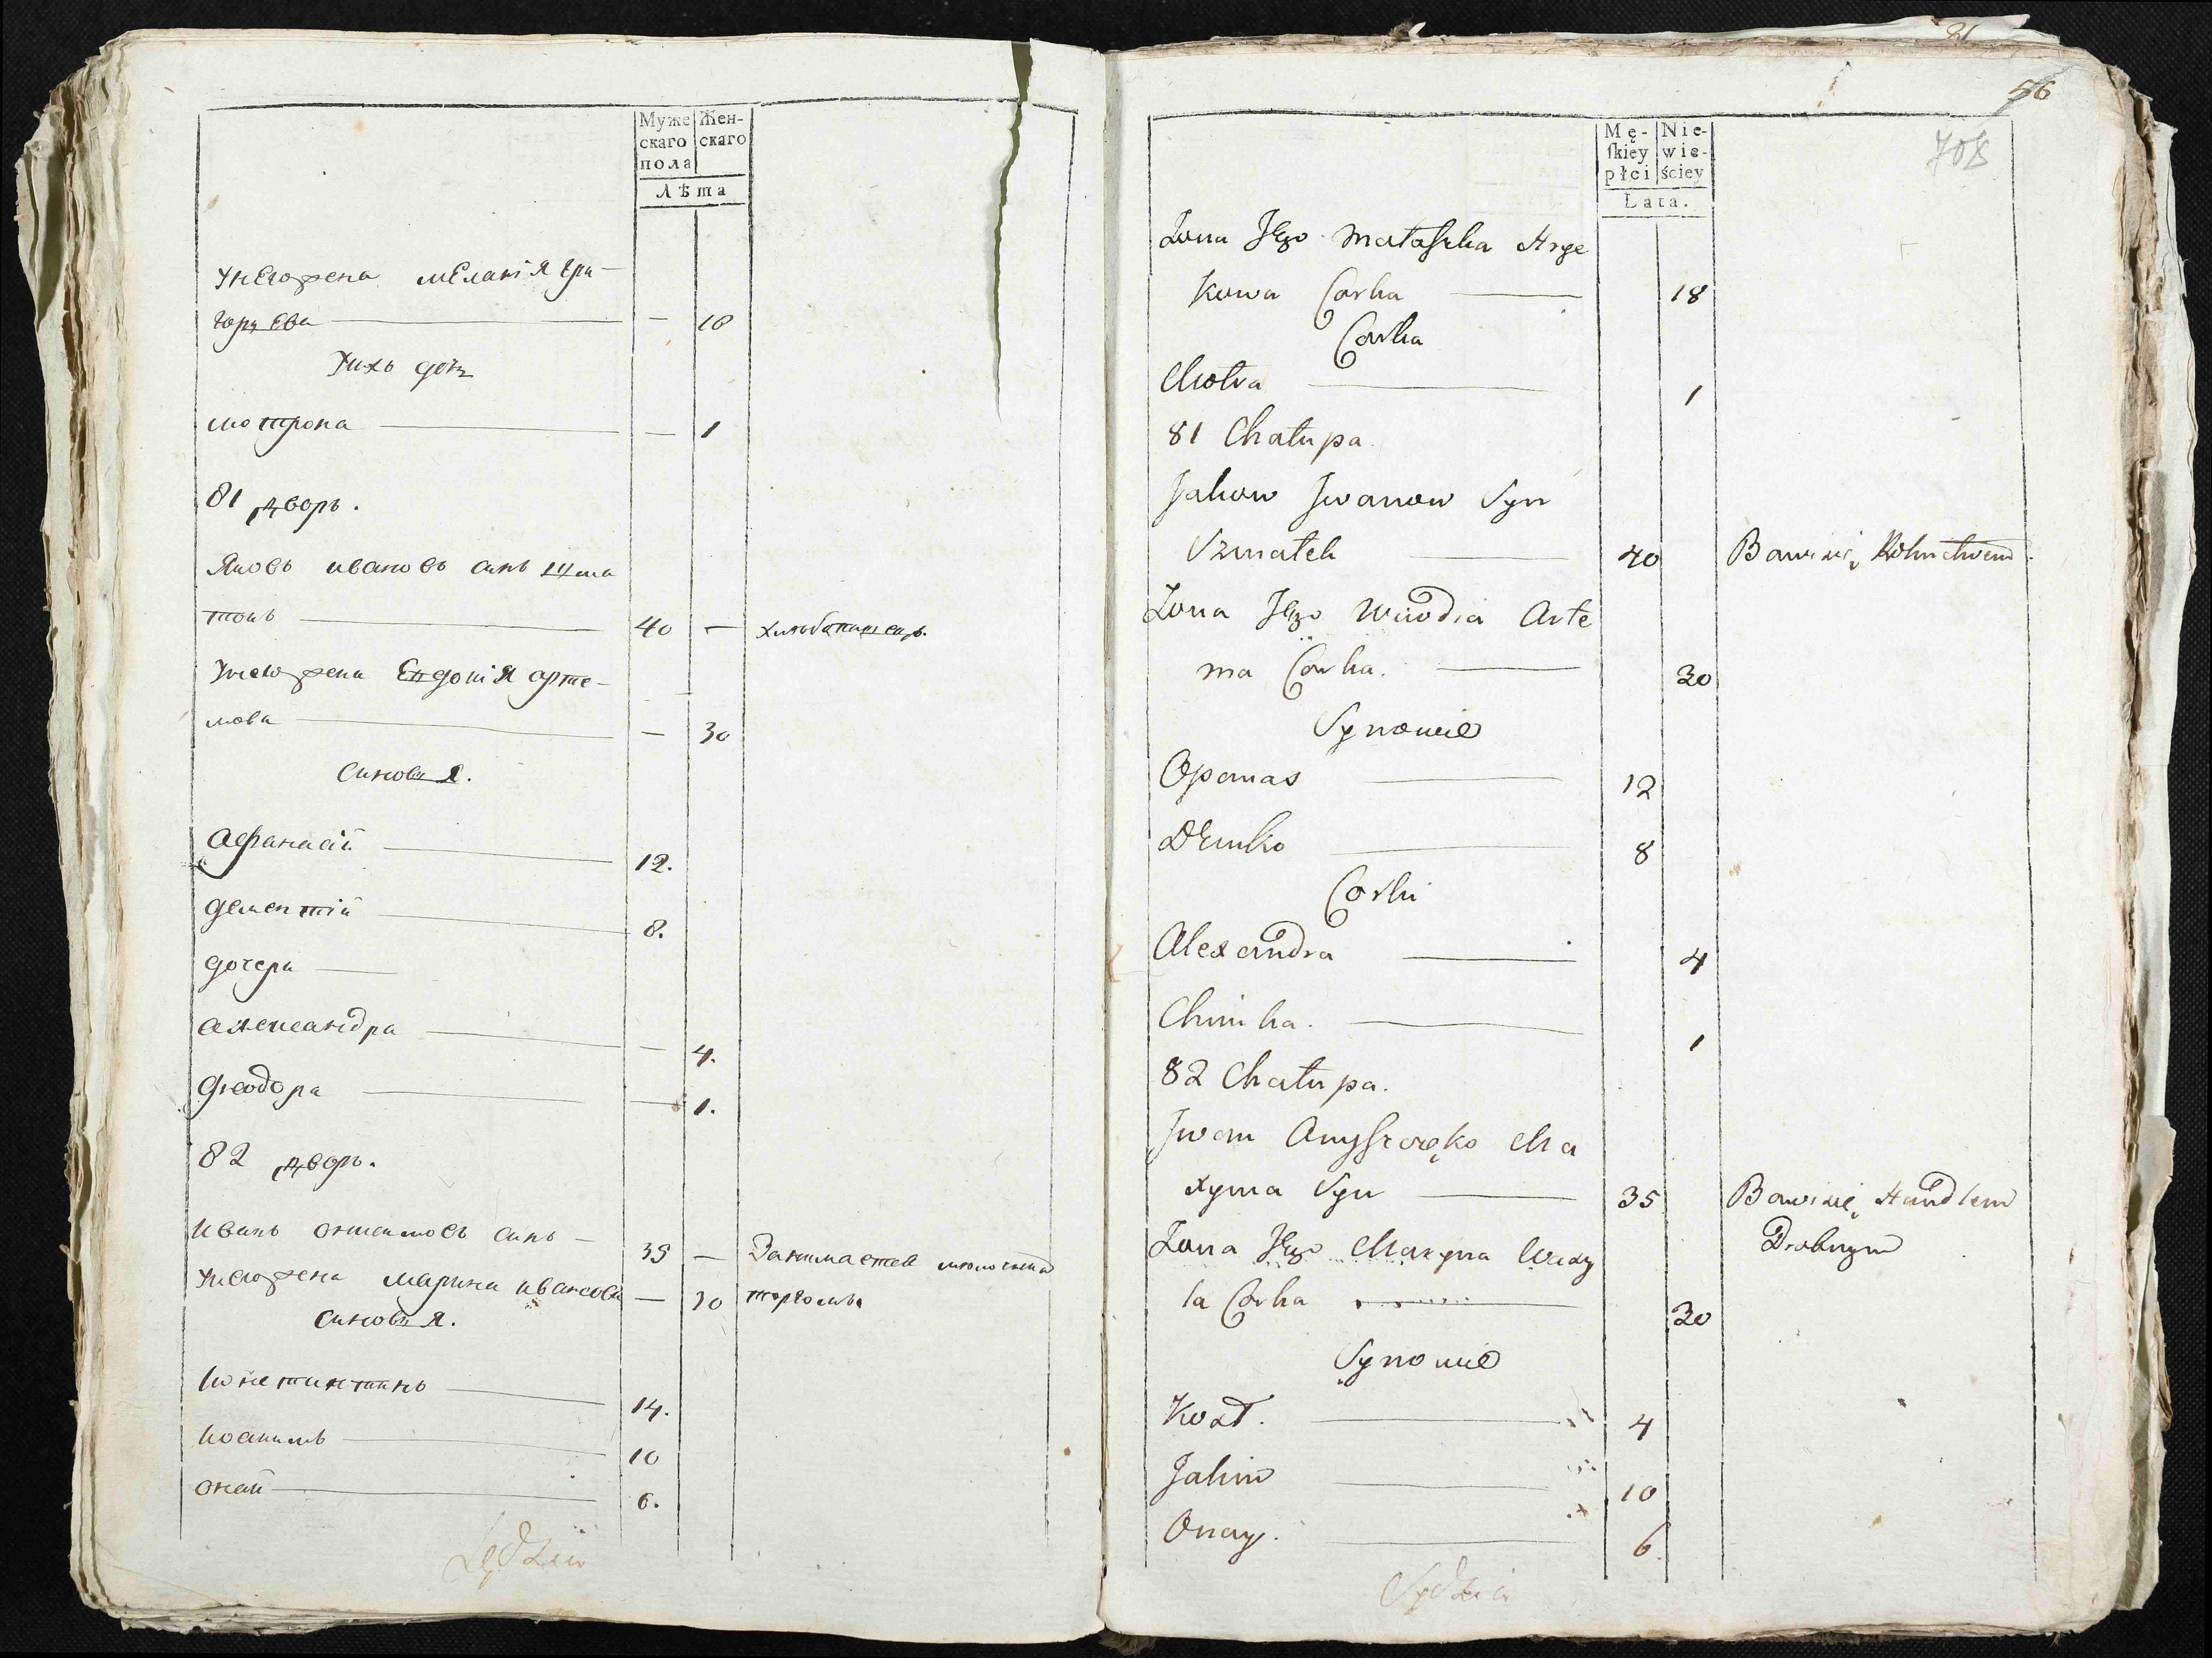 Муже
скаго
пола
Жен-
скаго
Лѣта
Унегожена меланія гри-
горьева — 18
Ихъ дочь
мотрона — 1
81 дворъ.
Яковъ ивановъ синъ Шма
токъ 40 — хлѣбопашецъ.
Унегожена Евдокія арте-
мова — 30
Синовья.
Афанасій 12.
дементій 8.
дочери
александра — 4.
Феодора — 1.
82 дворъ.
Иванъ синъ — 35 — Занимается мелочнимъ
Унегожена марина иванова — 30 торгомъ
Синовья.
Констинтинъ 14.
Иоакимъ 10
онай 6.
Sędzia
21
56
708
Mę-
ſkiey
płci
Nie-
wie-
ściey
Lata.
Żona Jego Matałzka Hrye
kowa Corka 18
Corka
Motra 1
81 Chałupa.
Jakow Jwanow Syn
Szmatek 40 Bawi się Rolnictwem.
Żona Jego Wiwdia Arte
ma Corka. 30
Synowie
Opanas 12
Demko 8
Corki
Alexandra 4
Chimka. 1
82 Chałupa.
Jwan Ma
xyma Syn 35 Bawi się Handlem
Drobnym
Żona Jego Maryna
la Corka 30
Synowie
Kost. 4
Jakim 10
Onay. 6
Sędzia